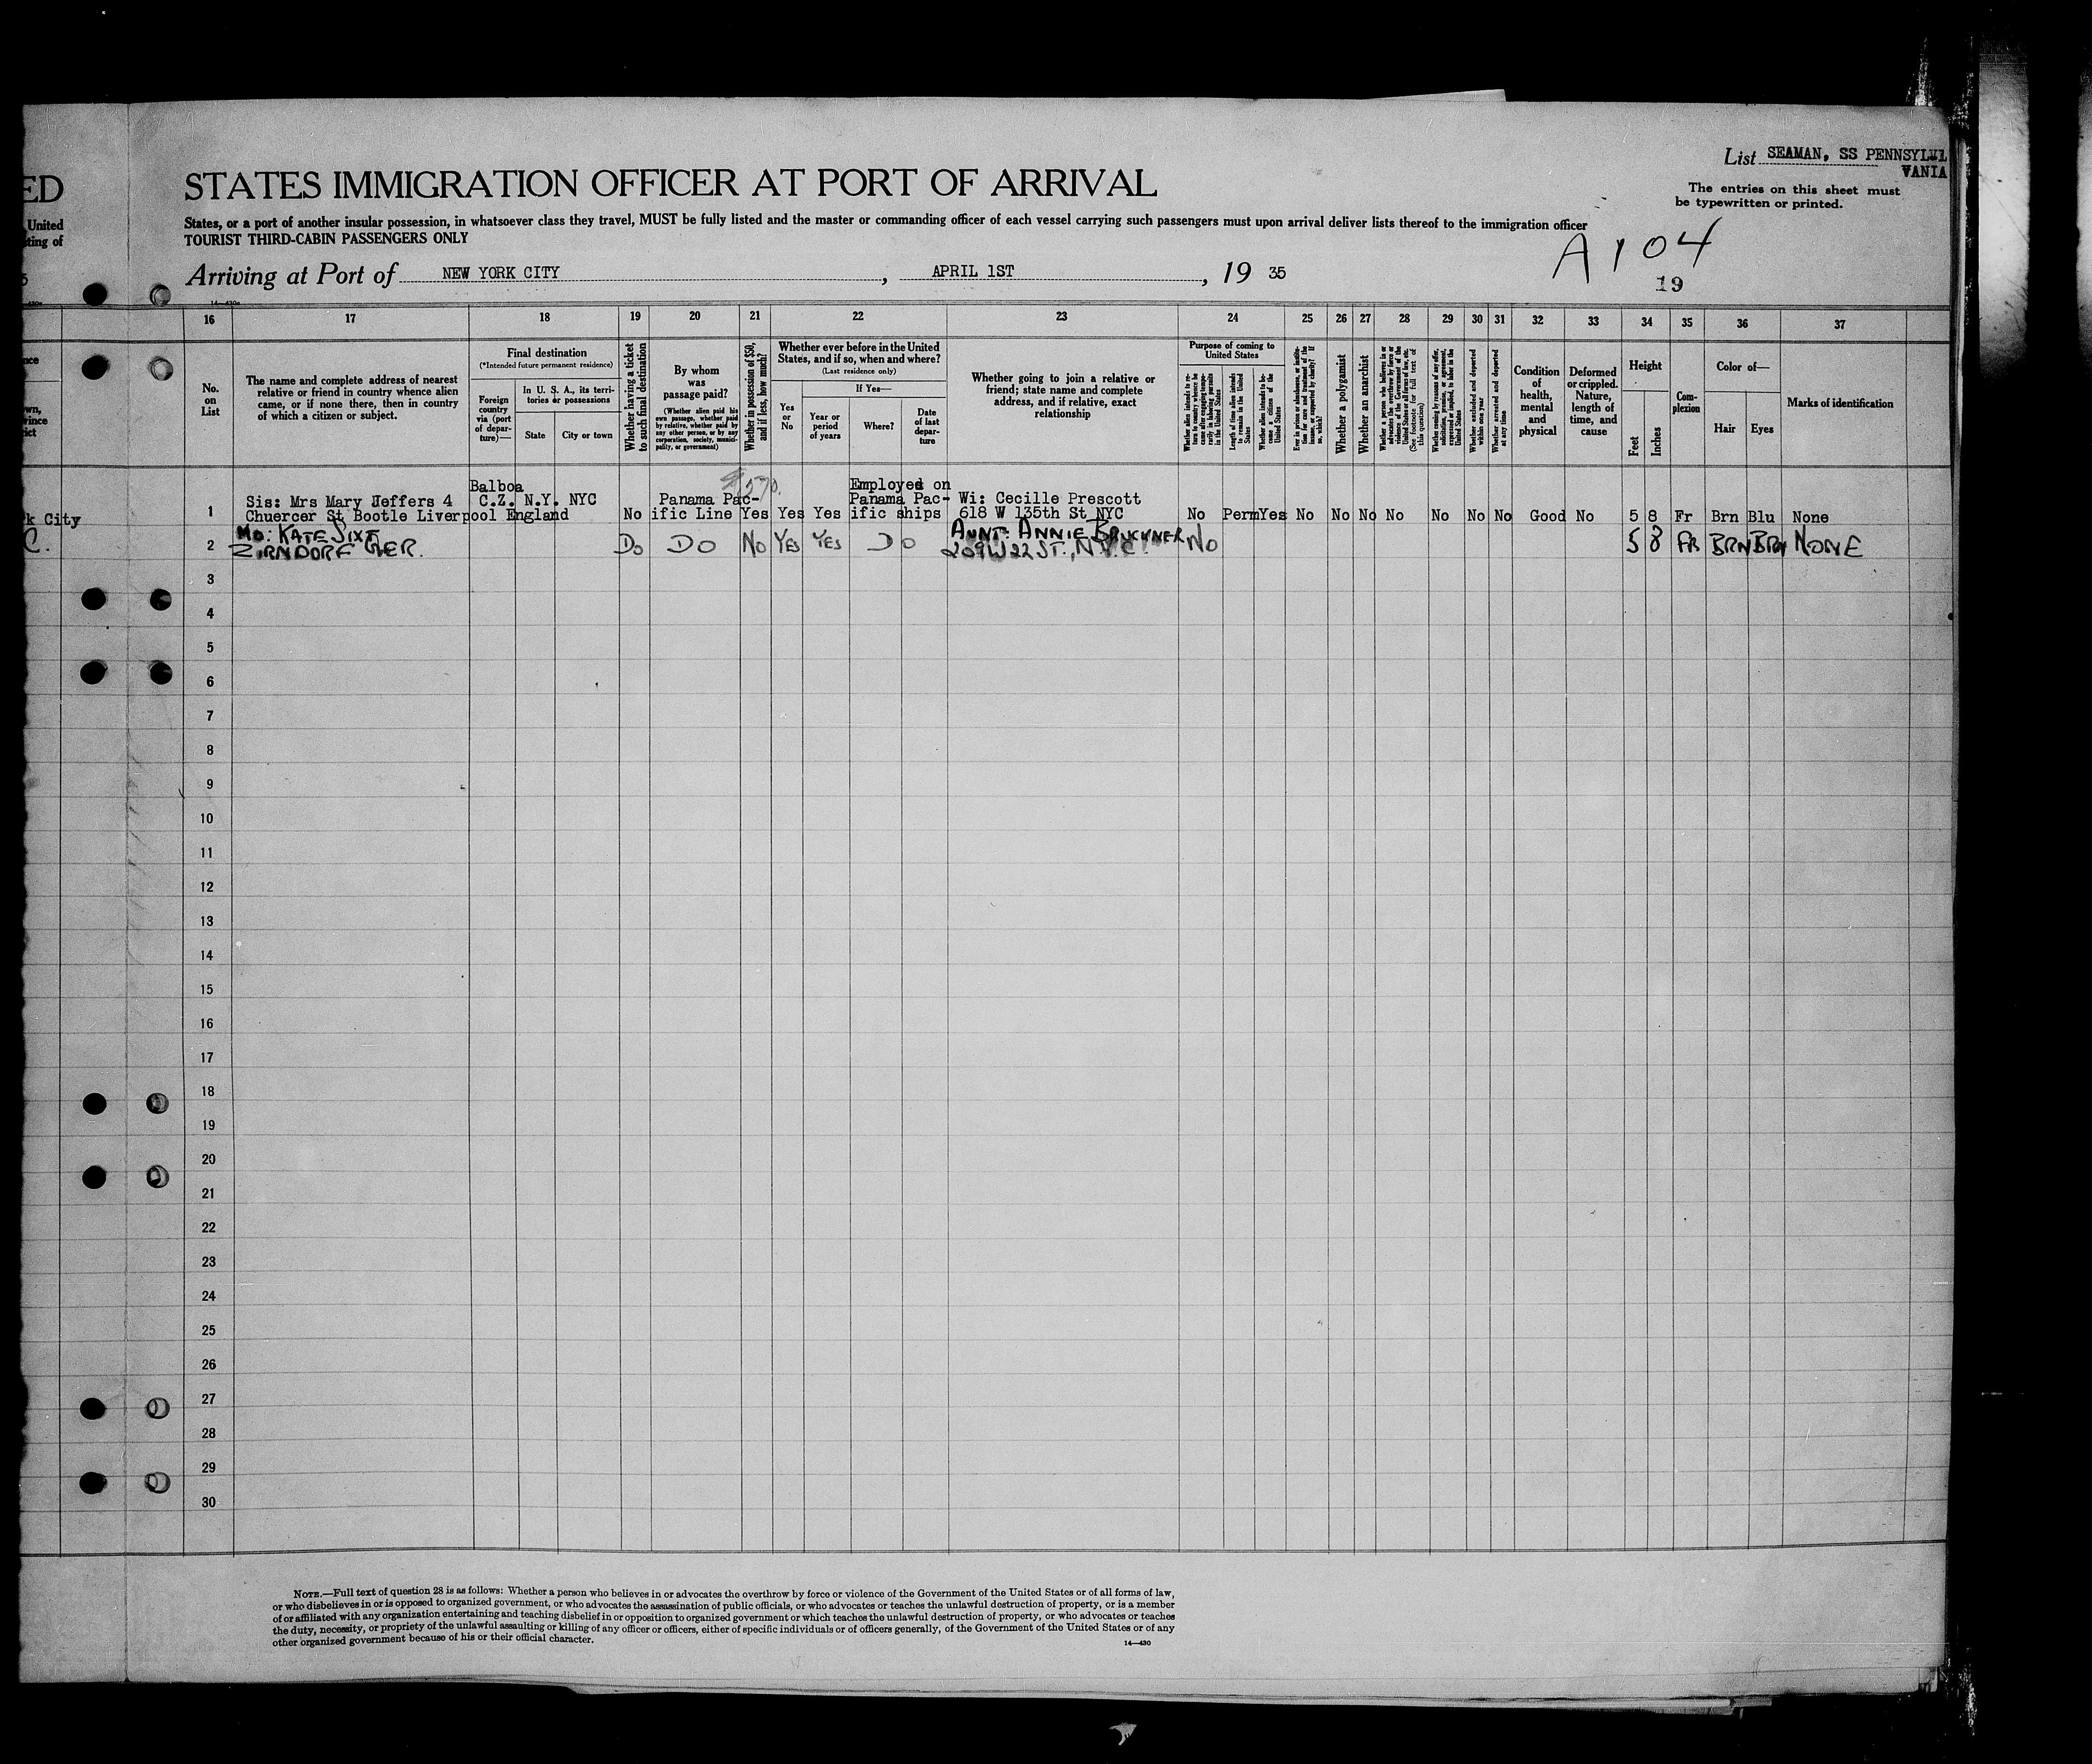 ED
United
ting of
5
STATES IMMIGRATION OFFICER AT PORT OF ARRIVAL
List SEAMAN, SS PENNSYL
VANIA
The entries on this sheet must
be typewritten or printed.
States, or a port of another insular possession, in whatsoever class they travel, MUST be fully listed and the master or commanding officer of each vessel carrying such passengers must upon arrival deliver lists thereof to the immigration officer
TOURIST THIRD-CABIN PASSENGERS ONLY
A 104
19
Arriving at Port of NEW YORK CITY, APRIL 1ST, 19 35
16 17 18 19 20 21 22 23 24 25 26 27 28 29 30 31 32 33 34 35 36 37
No.
on
List
The name and complete address of nearest
relative or friend in country whence alien
came, or if none there, then in country
of which a citizen or subject.
Final destination
(*Intended future permanent residence)
Foreign
country
via (port
of depar-
ture)—
In U. S. A., its terri-
tories or possessions
State
City or town
Whether having a ticket
to such final destination
By whom
was
passage paid?
(Whether alien paid his
own passage, whether paid
by relative, whether paid by
any other person, or by any
corporation, society, munici-
pality, or government)
Whether in possession of $50,
and if less, how much?
Whether ever before in the United
States, and if so, when and where?
(Last residence only)
Yes
or
No
If Yes—
Year or
period
of years
Where?
Date
of last
depar-
ture
Whether going to join a relative or
friend; state name and complete
address, and if relative, exact
relationship
Purpose of coming to
United States
Length of time alien intends
to remain in the United
States
Whether alien intends to be-
come a citizen of the
United States
Whether a polygamist
Whether an anarchist
(See footnote for full text of
this question)
Whether excluded and deported
within one year
Whether arrested and deported
at any time
Condition
of
health,
mental
and
physical
Deformed
or crippled.
Nature,
length of
time, and
cause
Height
Feet
Inches
Com-
plexion
Color of—
Hair
Eyes
Marks of identification
k City
C.
Balboa
Employed on
Sis: Mrs Mary Jeffers 4 C.Z. N.Y. NYC Panama Pac- Panama Pac- Wi: Cecille Prescott
1 Chuercer St Bootle Liverpool England No ific Line Yes Yes Yes ific ships 618 W 135th St NYC No Perm Yes No No No No No No No Good No 5 8 Fr Brn Blu None
MO: KATE SIXT AUNT: ANNIE BRUCKNER
2 ZIRNDORF GER. DO DO NO YES YES DO 209 W 22 ST., N.Y.C. NO 5 8 FR BRN BRN NONE
3
4
5
6
7
8
9
10
11
12
13
14
15
16
17
18
19
20
21
22
23
24
25
26
27
28
29
30
NOTE.—Full text of question 28 is as follows: Whether a person who believes in or advocates the overthrow by force or violence of the Government of the United States or of all forms of law,
or who disbelieves in or is opposed to organized government, or who advocates the assassination of public officials, or who advocates or teaches the unlawful destruction of property, or is a member
of or affiliated with any organization entertaining and teaching disbelief in or opposition to organized government or which teaches the unlawful destruction of property, or who advocates or teaches
the duty, necessity, or propriety of the unlawful assaulting or killing of any officer or officers, either of specific individuals or of officers generally, of the Government of the United States or of any
other organized government because of his or their official character.
14—430